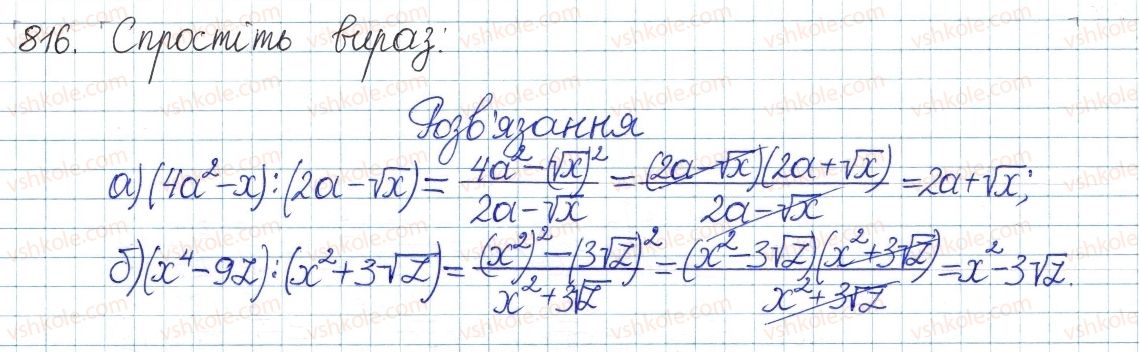 816. Спростіть вираз:
Розв'язання
а) (4a² - x) : (2a - √x) = (4a² - (√x)²)/(2a - √x) = ((2a - √x)(2a + √x))/(2a - √x) = 2a + √x;
б) (x⁴ - 9z) : (x² + 3√z) = ((x²)² - (3√z)²)/(x² + 3√z) = ((x² - 3√z)(x² + 3√z))/(x² + 3√z) = x² - 3√z.
vshkole.com